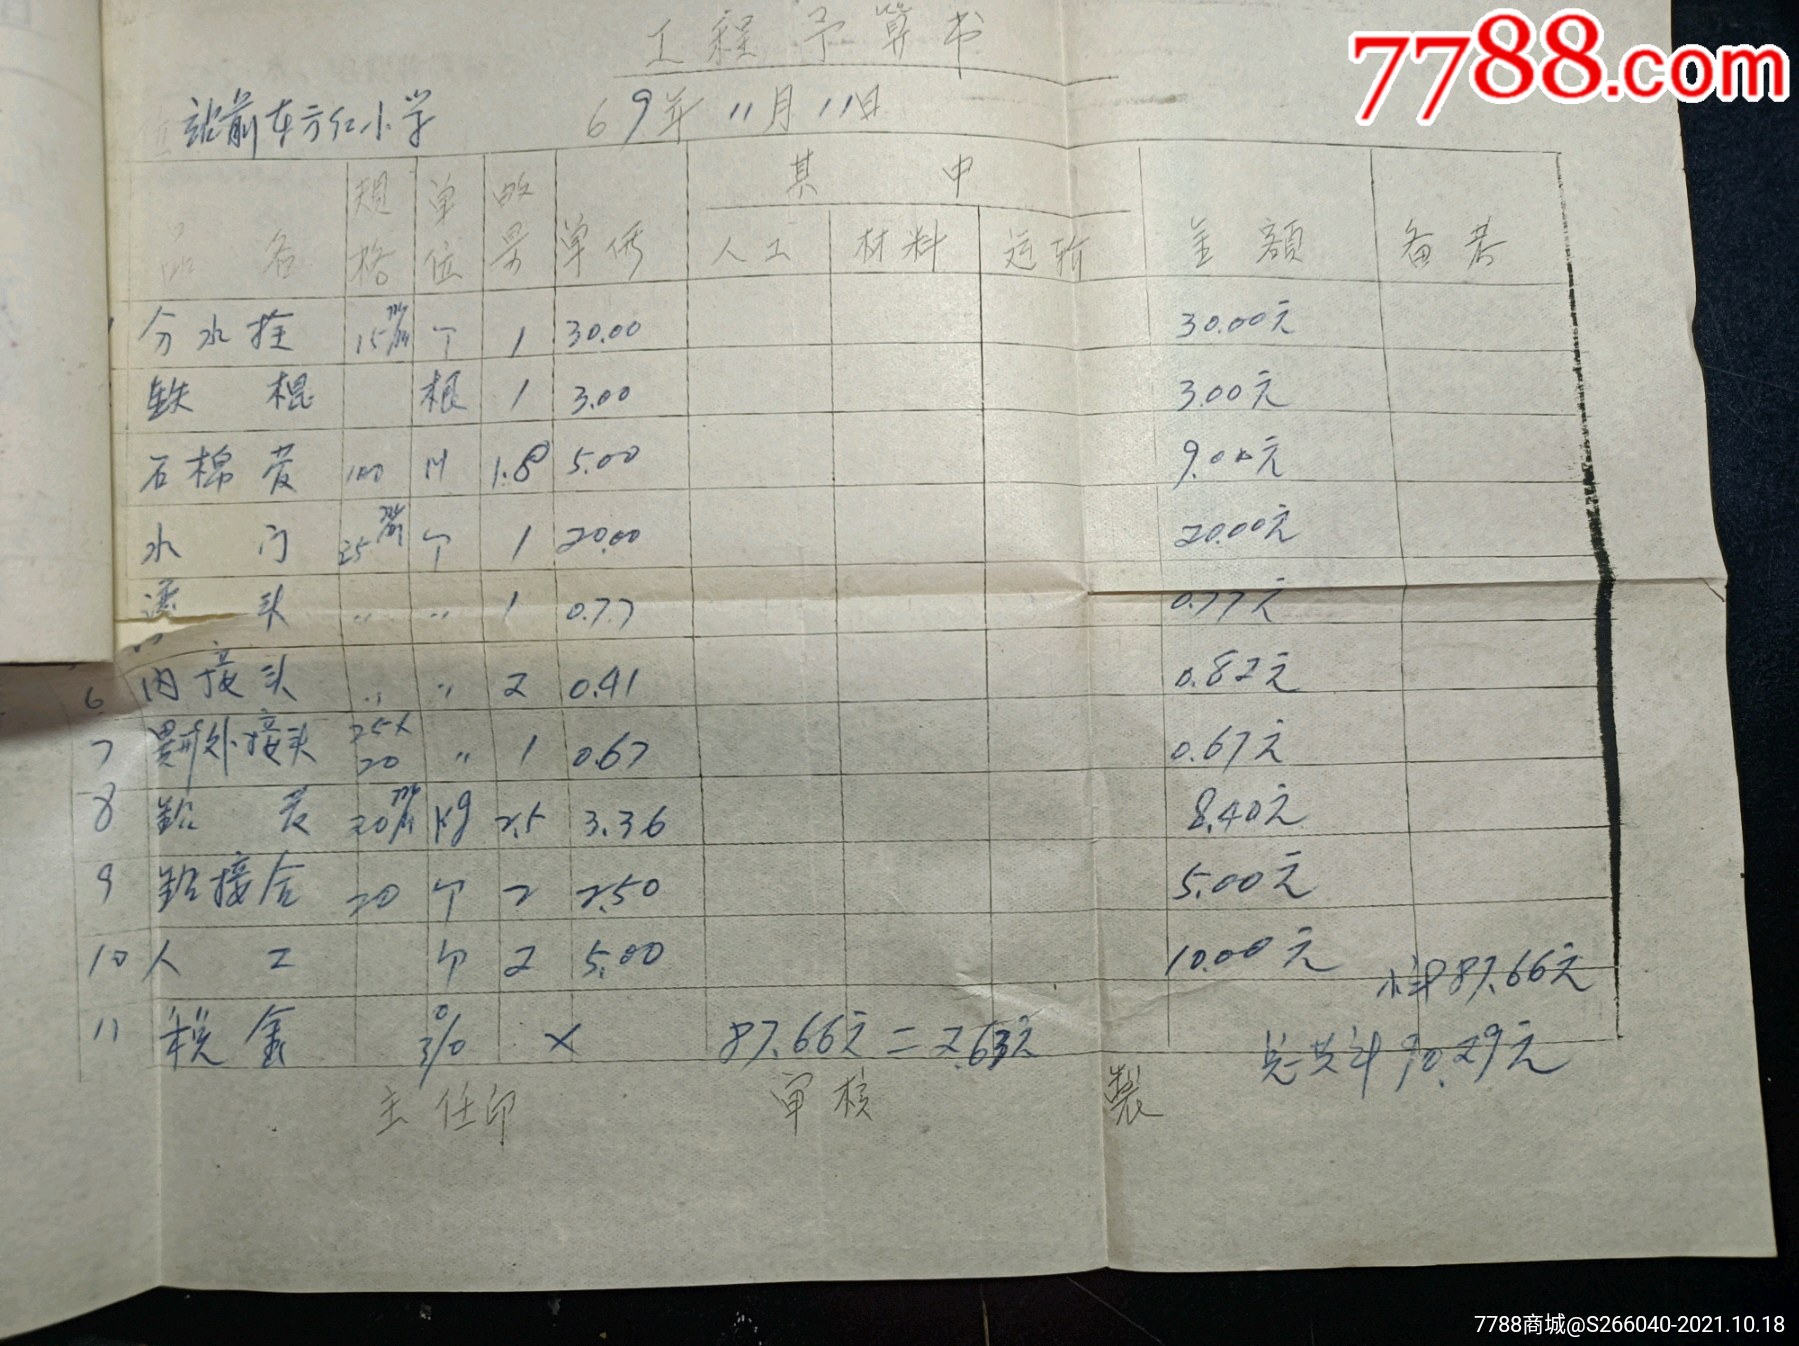 7788.com
工程予算书
站前东方红小学 69年11月11日
品名 规格 单位 数量 单价 其中 人工 材料 运输 金額 备考
分水栓 15㎜ 个 1 30.00 30.00元
鉄棍 根 1 3.00 3.00元
石棉管 100 M 1.8 5.00 9.00元
水门 25㎜ 个 1 20.00 20.00元
头 〃 〃 1 0.77 0.77元
6 内接头 〃 〃 2 0.41 0.82元
7 異形外接头 25×20 〃 1 0.67 0.67元
8 鉛管 20㎜ kg 2.5 3.36 8.40元
9 鉛接合 20 个 2 2.50 5.00元
10 人工 个 2 5.00 10.00元
小计87.66元
11 税金 3% × 87.66元=2.63元
总共计90.29元
主任印 审核 製
7788商城@S266040-2021.10.18